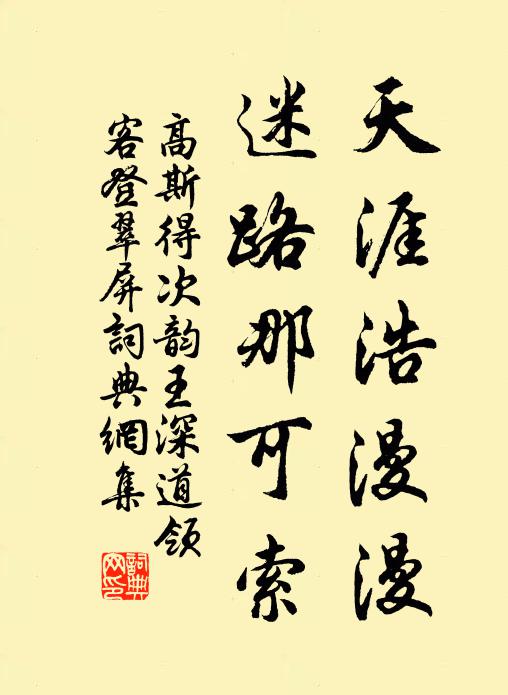 天涯浩漫漫
迷路那可索
高斯得次韵王深道领
客登翠屏詞典網集
詞典
网印